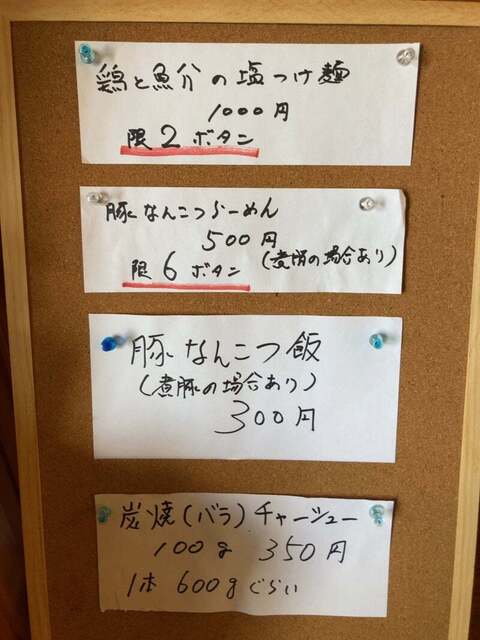 鶏と魚分の塩つけ麺
1000円
限2ボタン
豚なんこつらーめん
500円
(煮豚の場合あり)
限6ボタン
豚なんこつ飯
(煮豚の場合あり)
300円
炭焼(バラ)チャーシュー
100g 350円
1本 600gぐらい